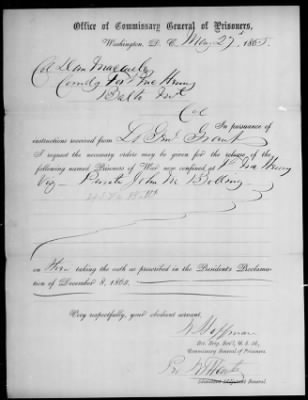 Office of Commissary General of Prisoners,
Washington, D. C., May 27, 1865.
Col Dan Macauley
Comdg Fort McHenry
Balto Md
Col
In pursuance of
instructions received from Lt Genl Grant
I request the necessary orders may be given for the release of the
following named Prisoners of War now confined at Ft McHenry
Viz — Private John M Bolling
on their taking the oath as prescribed in the President's Proclama-
tion of December 8, 1863.
Very respectfully, your obedient servant,
W Hoffman
Bvt. Brig. Gen'l, U. S. A.,
Commissary General of Prisoners.